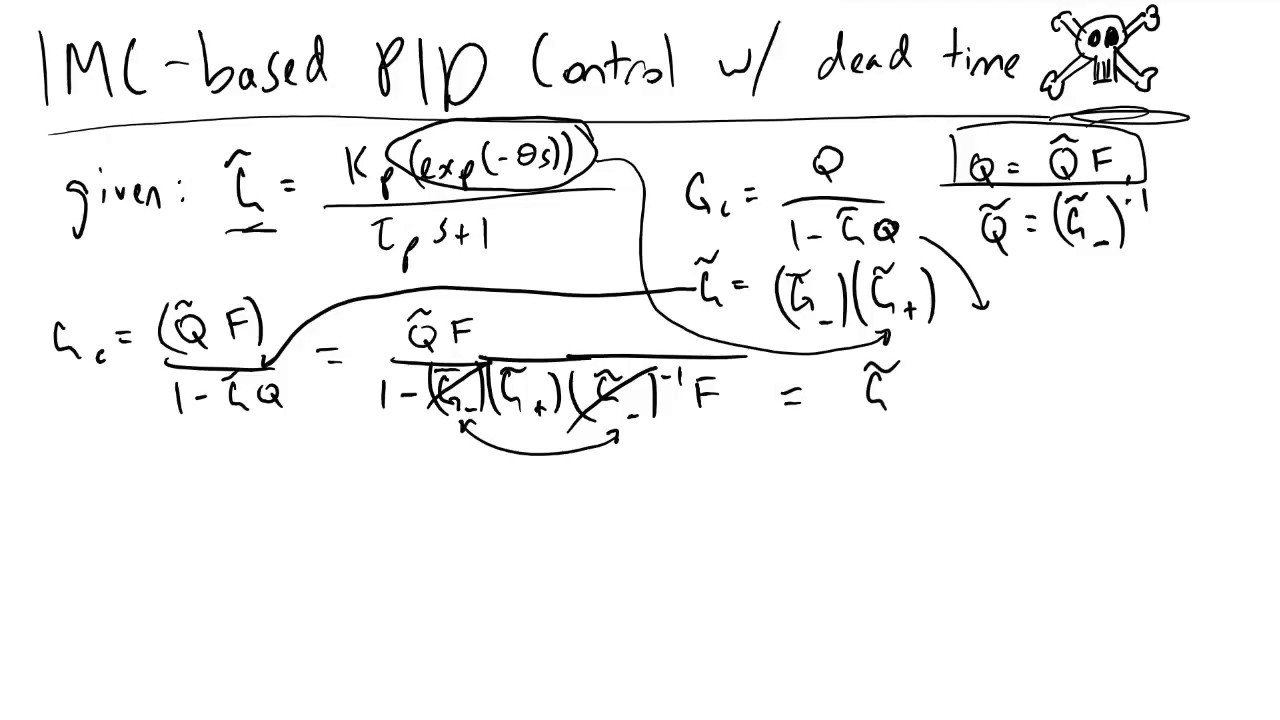 IMC-based PID Control w/ dead time
given: G̃ = Kp(exp(-θs)) / τp s+1
Gc = Q / 1-G̃Q
Q = Q̃ F
Q̃ = (G̃-)^-1
G̃ = (G̃-)(G̃+)
Gc = (Q̃ F) / 1-G̃Q = Q̃ F / 1-(G̃-)(G̃+)(G̃-)^-1 F = G̃